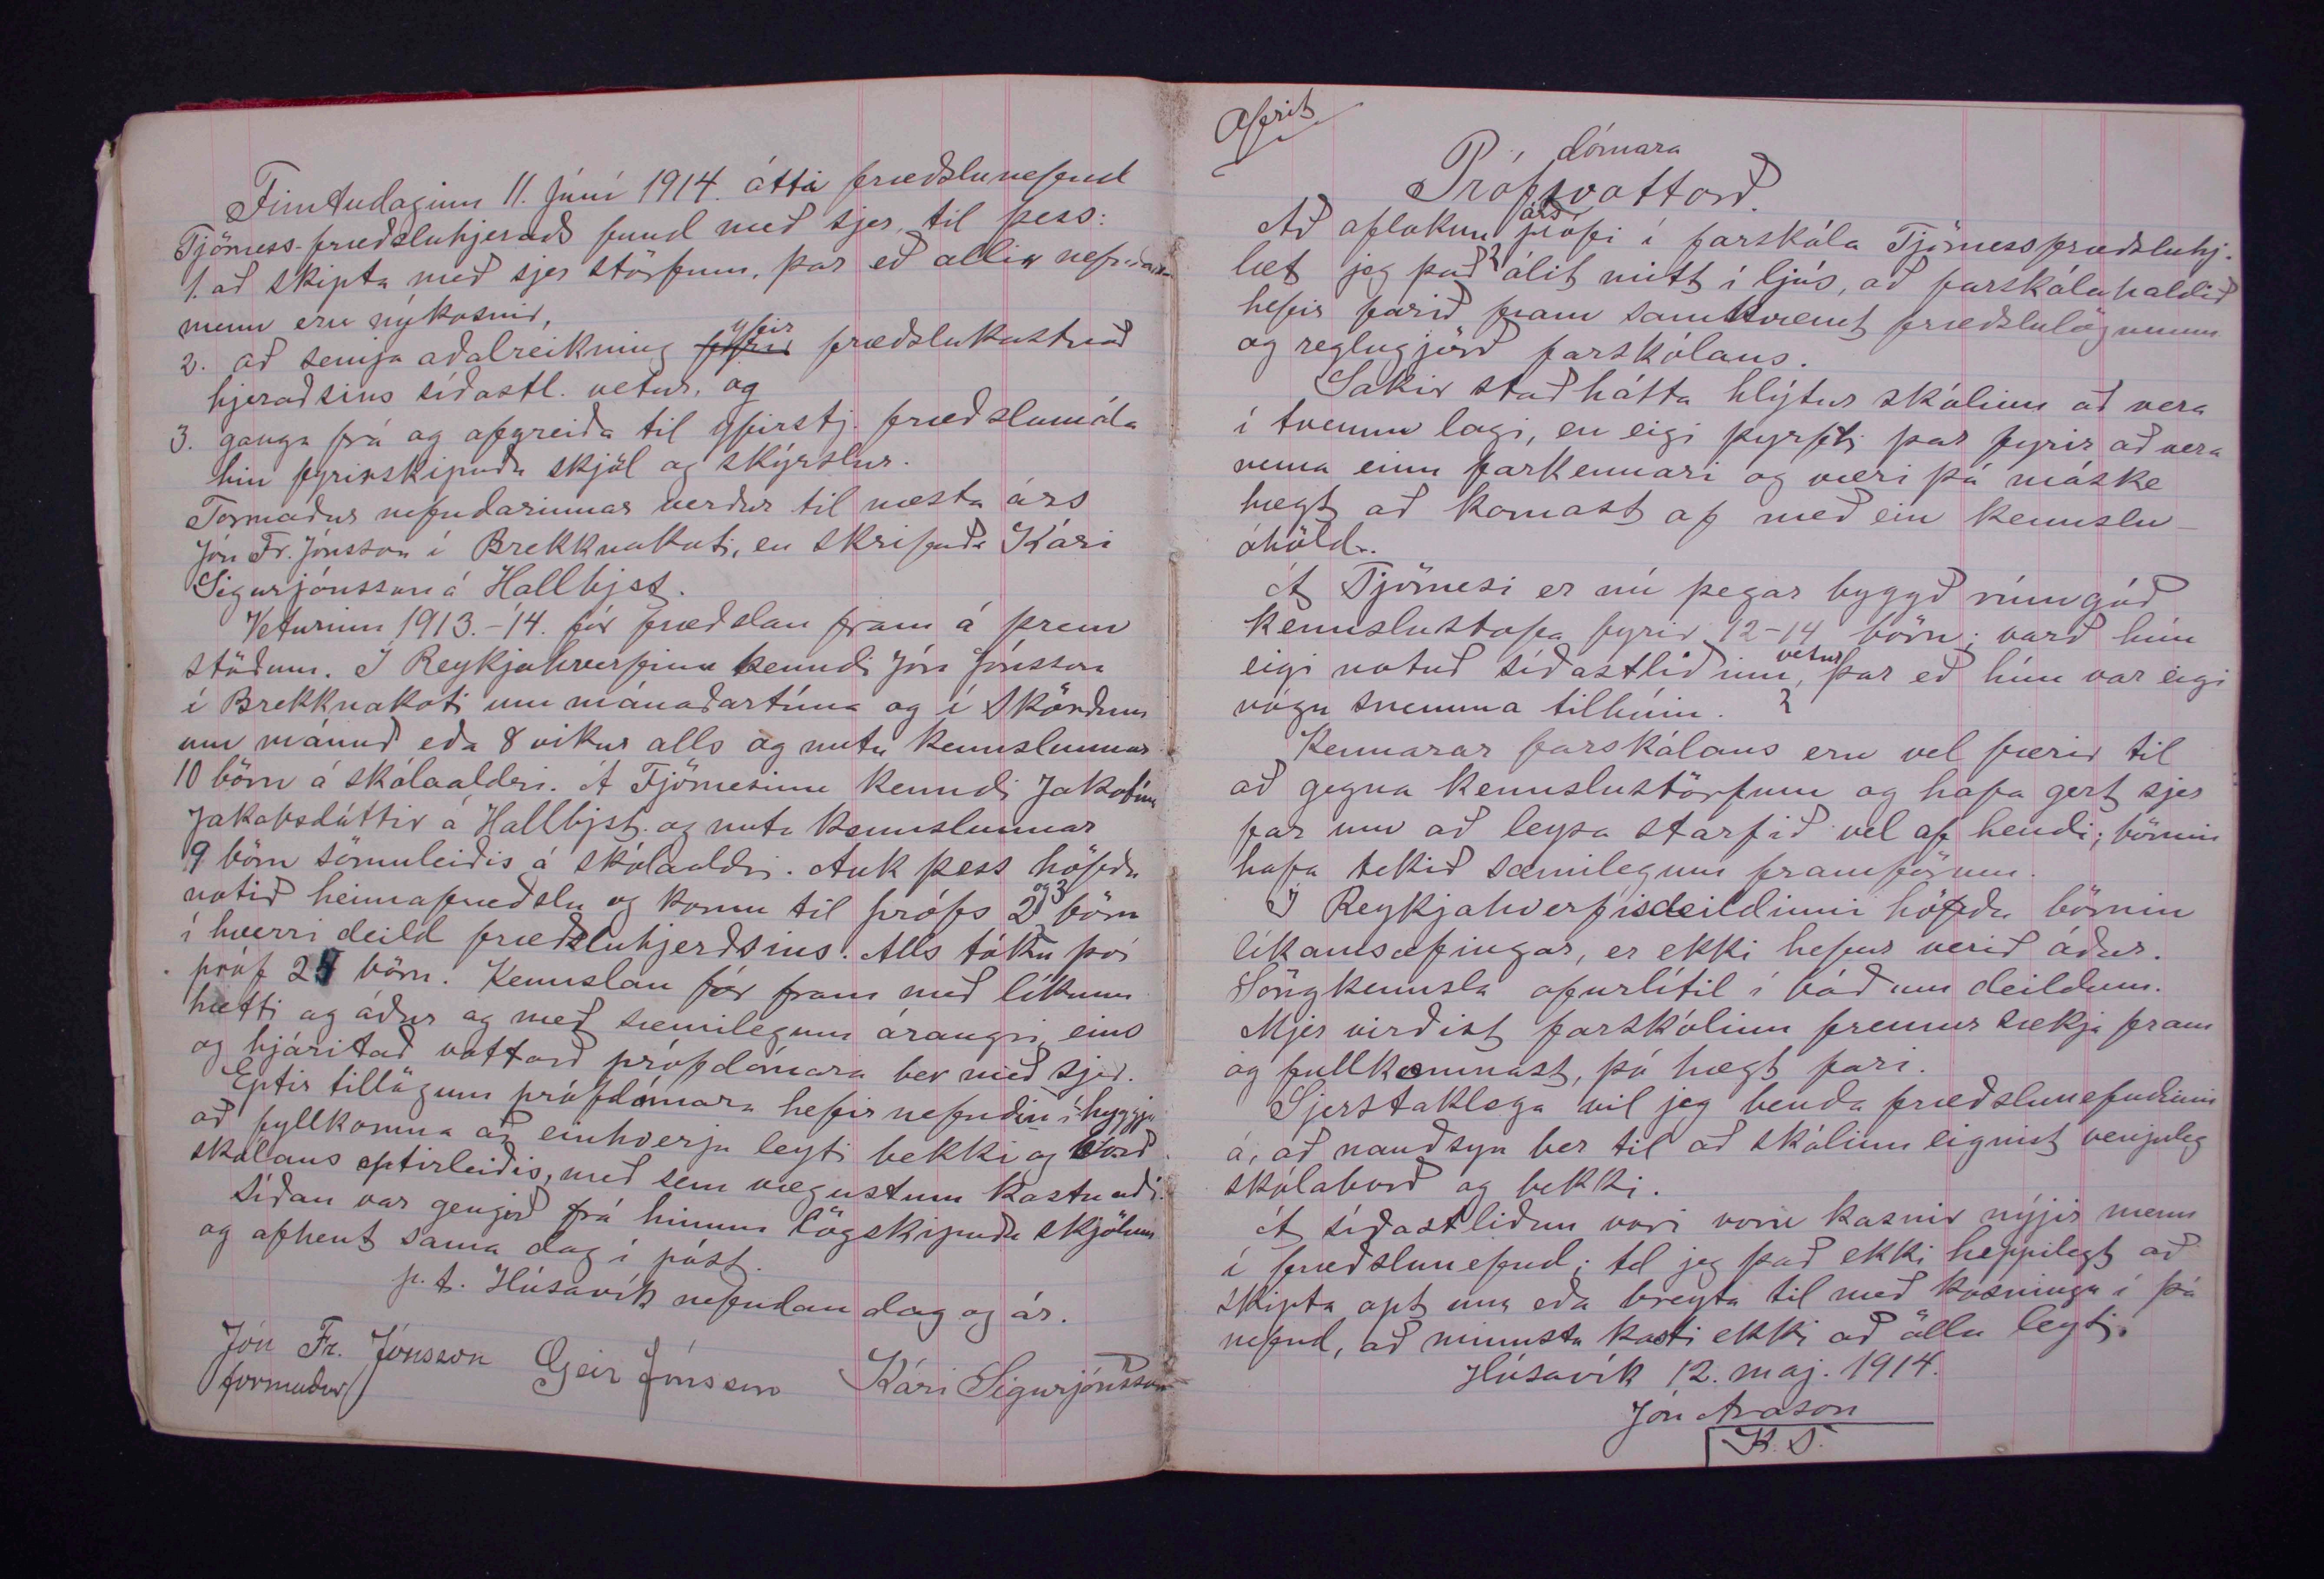 Fimtudaginn 11. júní 1914. átti fræðslunefnd
Tjörness-fræðsluhjeraðs fund með sjer, til þess:
1. að skipta með sjer störfum, þar eð allir nefndar-
menn eru nýkosnir,
2. að semja aðalreikning fyrir yfir fræðslukostnað
hjeraðsins síðastl. vetur, og
3. ganga frá og afgreiða til yfirstj. fræðslumála
hin fyrirskipuðu skjöl og skýrslur.
Formaður nefndarinnar verður til næsta árs
Jón Fr. Jónsson í Brekknakoti, en skrifari Kári
Sigurjónsson á Hallbjst.
Veturinn 1913.-14. fór fræðslan fram á þrem
stöðum. Í Reykjahverfinu kenndi Jón Jónsson
í Brekknakoti um mánaðartíma og í Skörðum
um mánuð eða 8 vikur alls og nutu kennslunnar
10 börn á skólaaldri. Á Tjörnesinu kenndi Jakobína
Jakobsdóttir á Hallbjst. og nutu kennslunnar
9 börn sömuleiðis á skólaaldri. Auk þess höfðu
notið heimafræðslu og komu til prófs 2 og 3 börn
í hverri deild fræðsluhjerðsins. Alls tóku því
próf 24 börn. Kennslan fór fram með líkum
hætti og áður og með sæmilegum árangri, eins
og hjáritað vottorð prófdómara ber með sjer.
Eptir tillögum prófdómara hefir nefndin í hyggju
að fyllkomna að einhverju leyti bekki og borð
skólans eptirleiðis, með sem vægustum kostnaði.
Síðan var gengið frá hinum lögskipuðu skjölum
og afhent sama dag í póst.
p.t. Húsavík nefndan dag og ár.
Jón Fr. Jónsson Geir Jónsson Kári Sigurjónsson
formaður
Afrit
Prófdómara
vottorð.
Að afloknu ársprófi í farskóla Tjörnessfræðsluhj.
læt jeg það álit mitt í ljós, að farskólahaldið
hefir farið fram samkvæmt fræðslulögunum
og reglugjörð farskólans.
Sakir staðhátta hlýtur skólinn að vera
í tvennu lagi, en eigi þyrfti þar fyrir að vera
nema einn farkennari og væri þá máske
hægt að komast af með ein kennslu-
áhöld.
Á Tjörnesi er nú þegar byggð rúmgóð
kennslustofa fyrir 12-14 börn; varð hún
eigi notuð síðastliðinn vetur, þar eð hún var eigi
nógu snemma tilbúin.
Kennarar farskólans eru vel færir til
að gegna kennslustörfum og hafa gert sjer
far um að leysa starfið vel af hendi; börnin
hafa tekið sæmilegum framförum.
Í Reykjahverfisdeildinni höfðu börnin
líkamsæfingar, er ekki hefur verið áður.
Söngkennsla ofurlítil í báðum deildum.
Mjer virðist farskólinn fremur sækja fram
og fullkomnast, þó hægt fari.
Sjerstaklega vil jeg benda fræðslunefndinni
á, að nauðsyn ber til að skólinn eignist venjuleg
skólaborð og bekki.
Á síðastliðnu vori voru kosnir nýjir menn
í fræðslunefnd; tel jeg það ekki heppilegt að
skipta opt um eða breyta til með kosningu í þá
nefnd, að minnsta kosti ekki að öllu leyti.
Húsavík 12. maj. 1914.
Jón Arason
K. S.